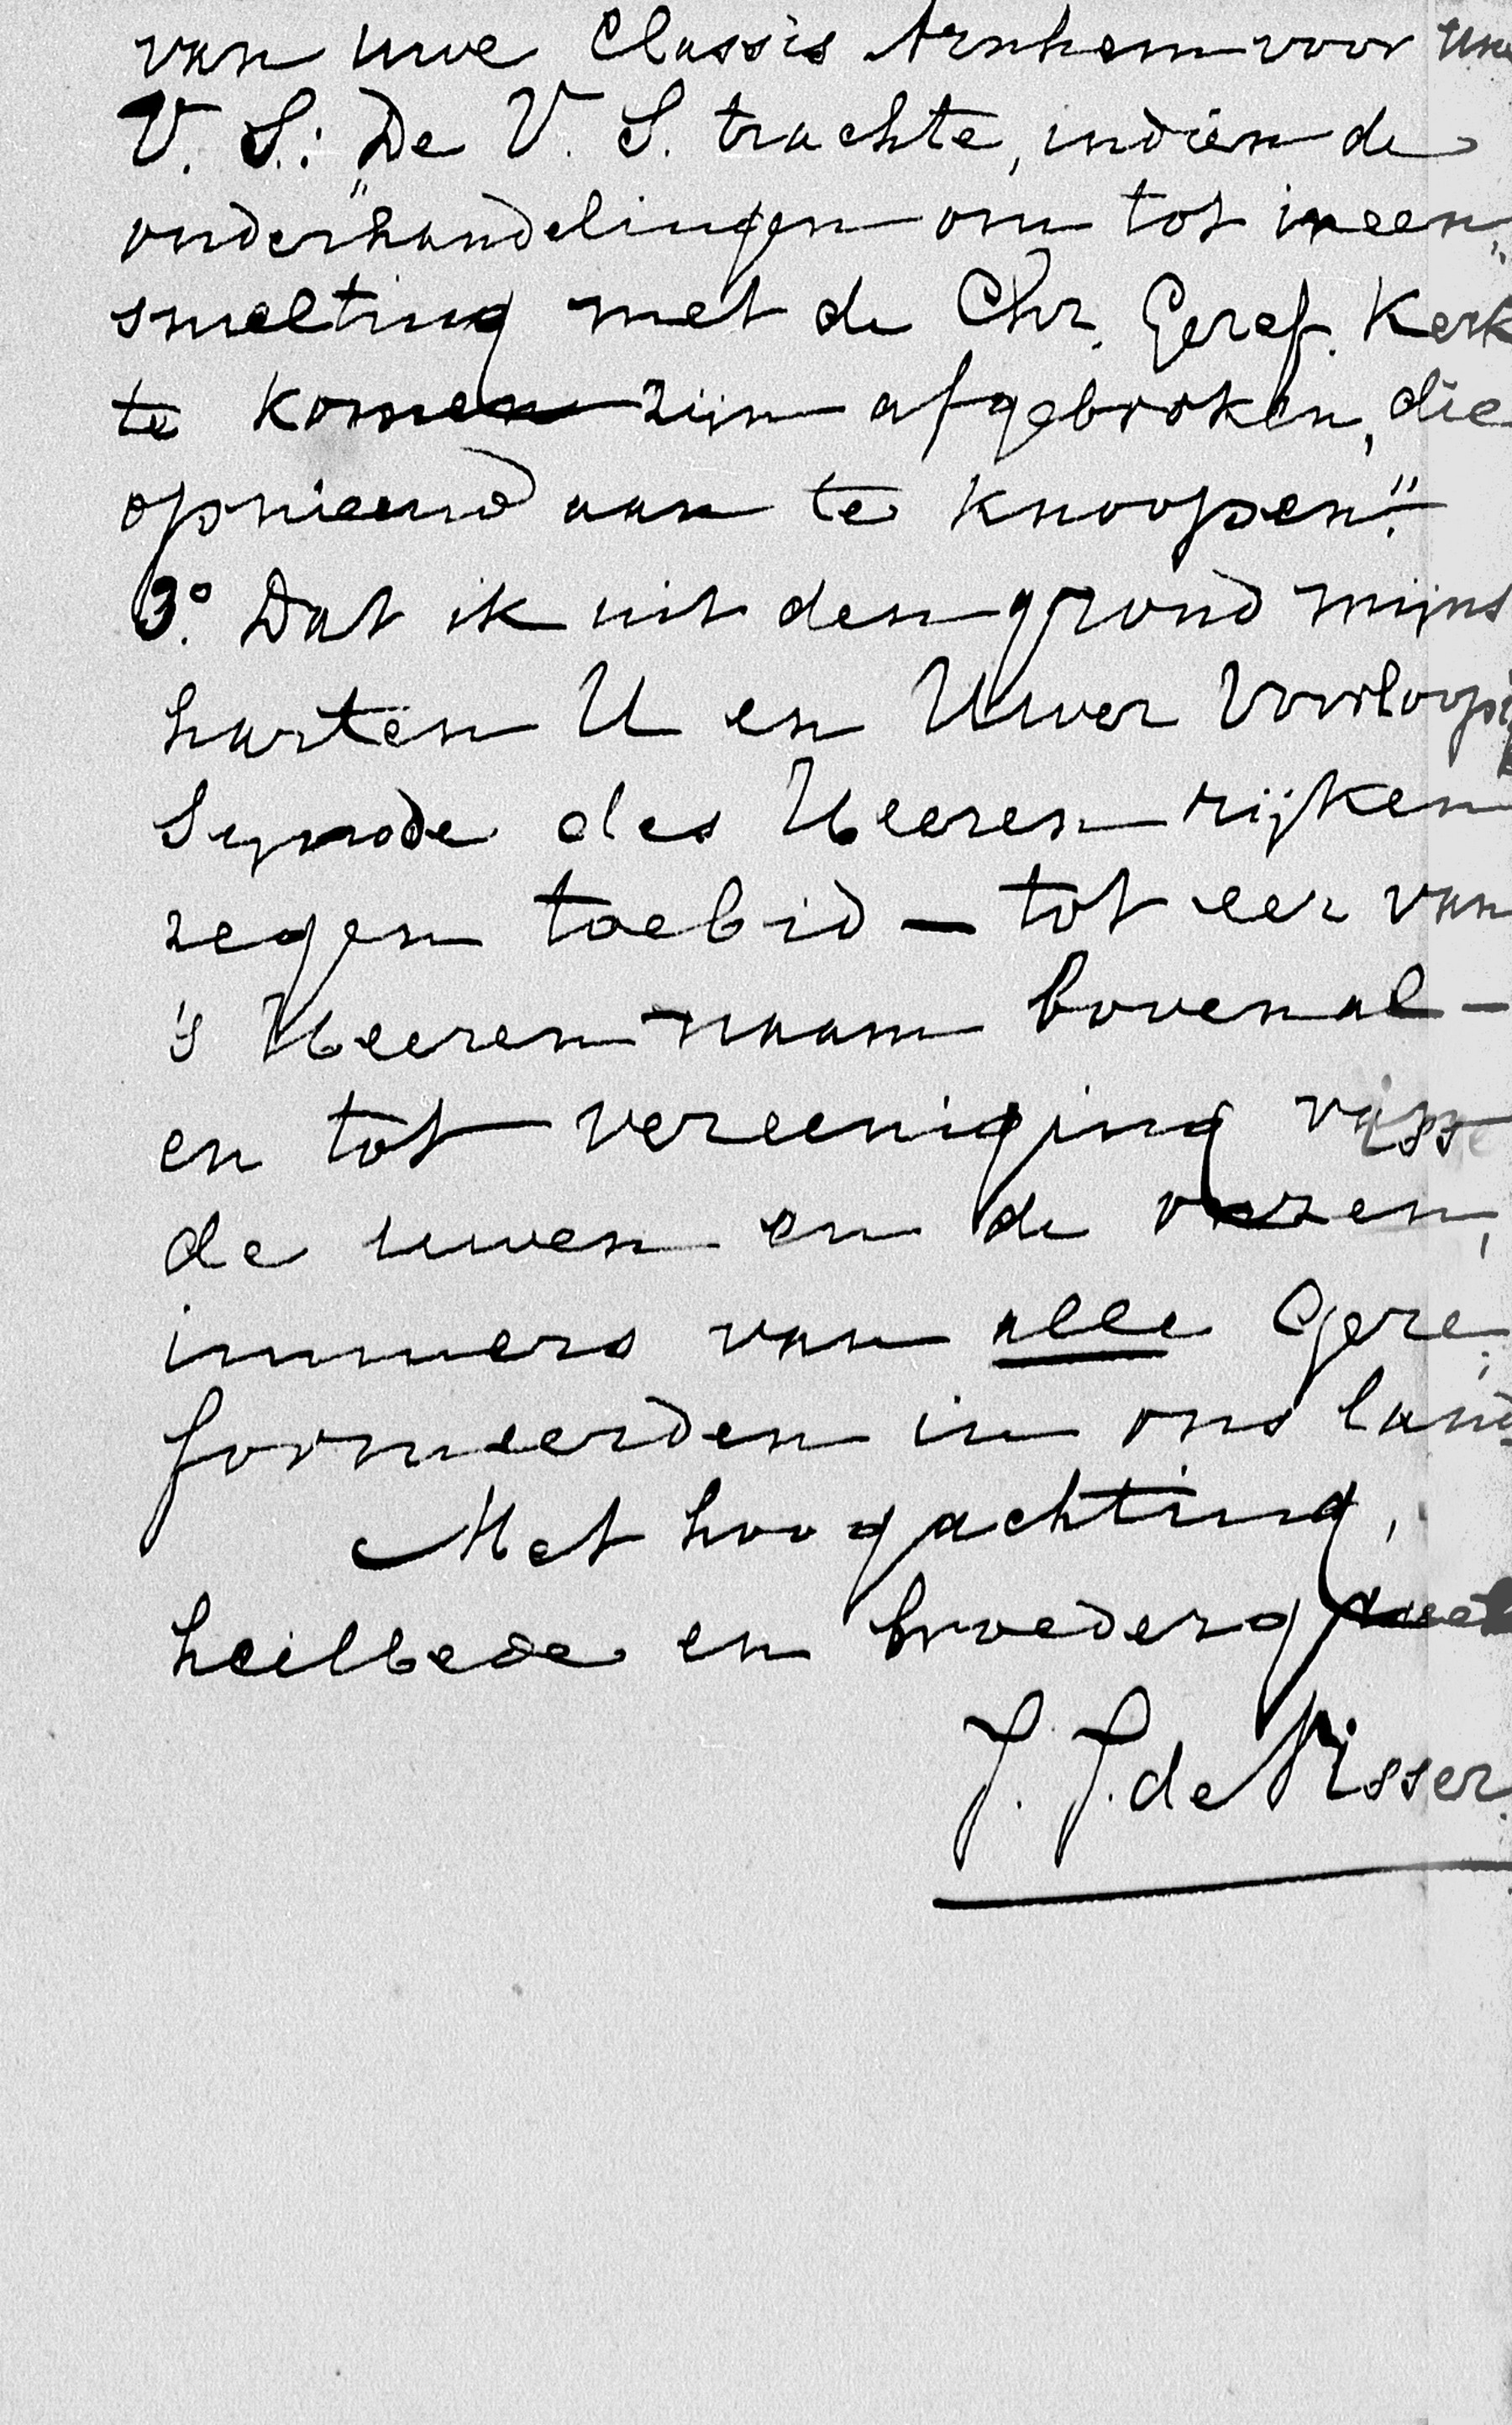 van uwe Classis Arnhem voor uwe
V. S.: „De V. S. trachte, indien de
onderhandelingen om tot ineen„
smelting met de Chr. Geref. Kerk
te komen zijn afgebroken, die
opnieuw aan te knoopen."
3º. Dat ik uit den grond mijns
harten U en Uwer Voorloopig
Synode des Heeren rijken
zegen toebid — tot eer van
's Heeren naam bovenal —
en tot vereeniging
de uwen en de onzen,
immers van alle Gere„
formeerden in ons land.
Met hoogachting,
heilbede en broedergroet
J. J. de Visser.